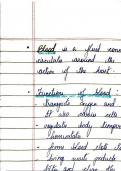 Blood is a fluid conn
circulate around the
action of the heart.
Function of blood :
transports oxygen and
It also
regulate body temper
homeostatis
form blood clots
bring waste products